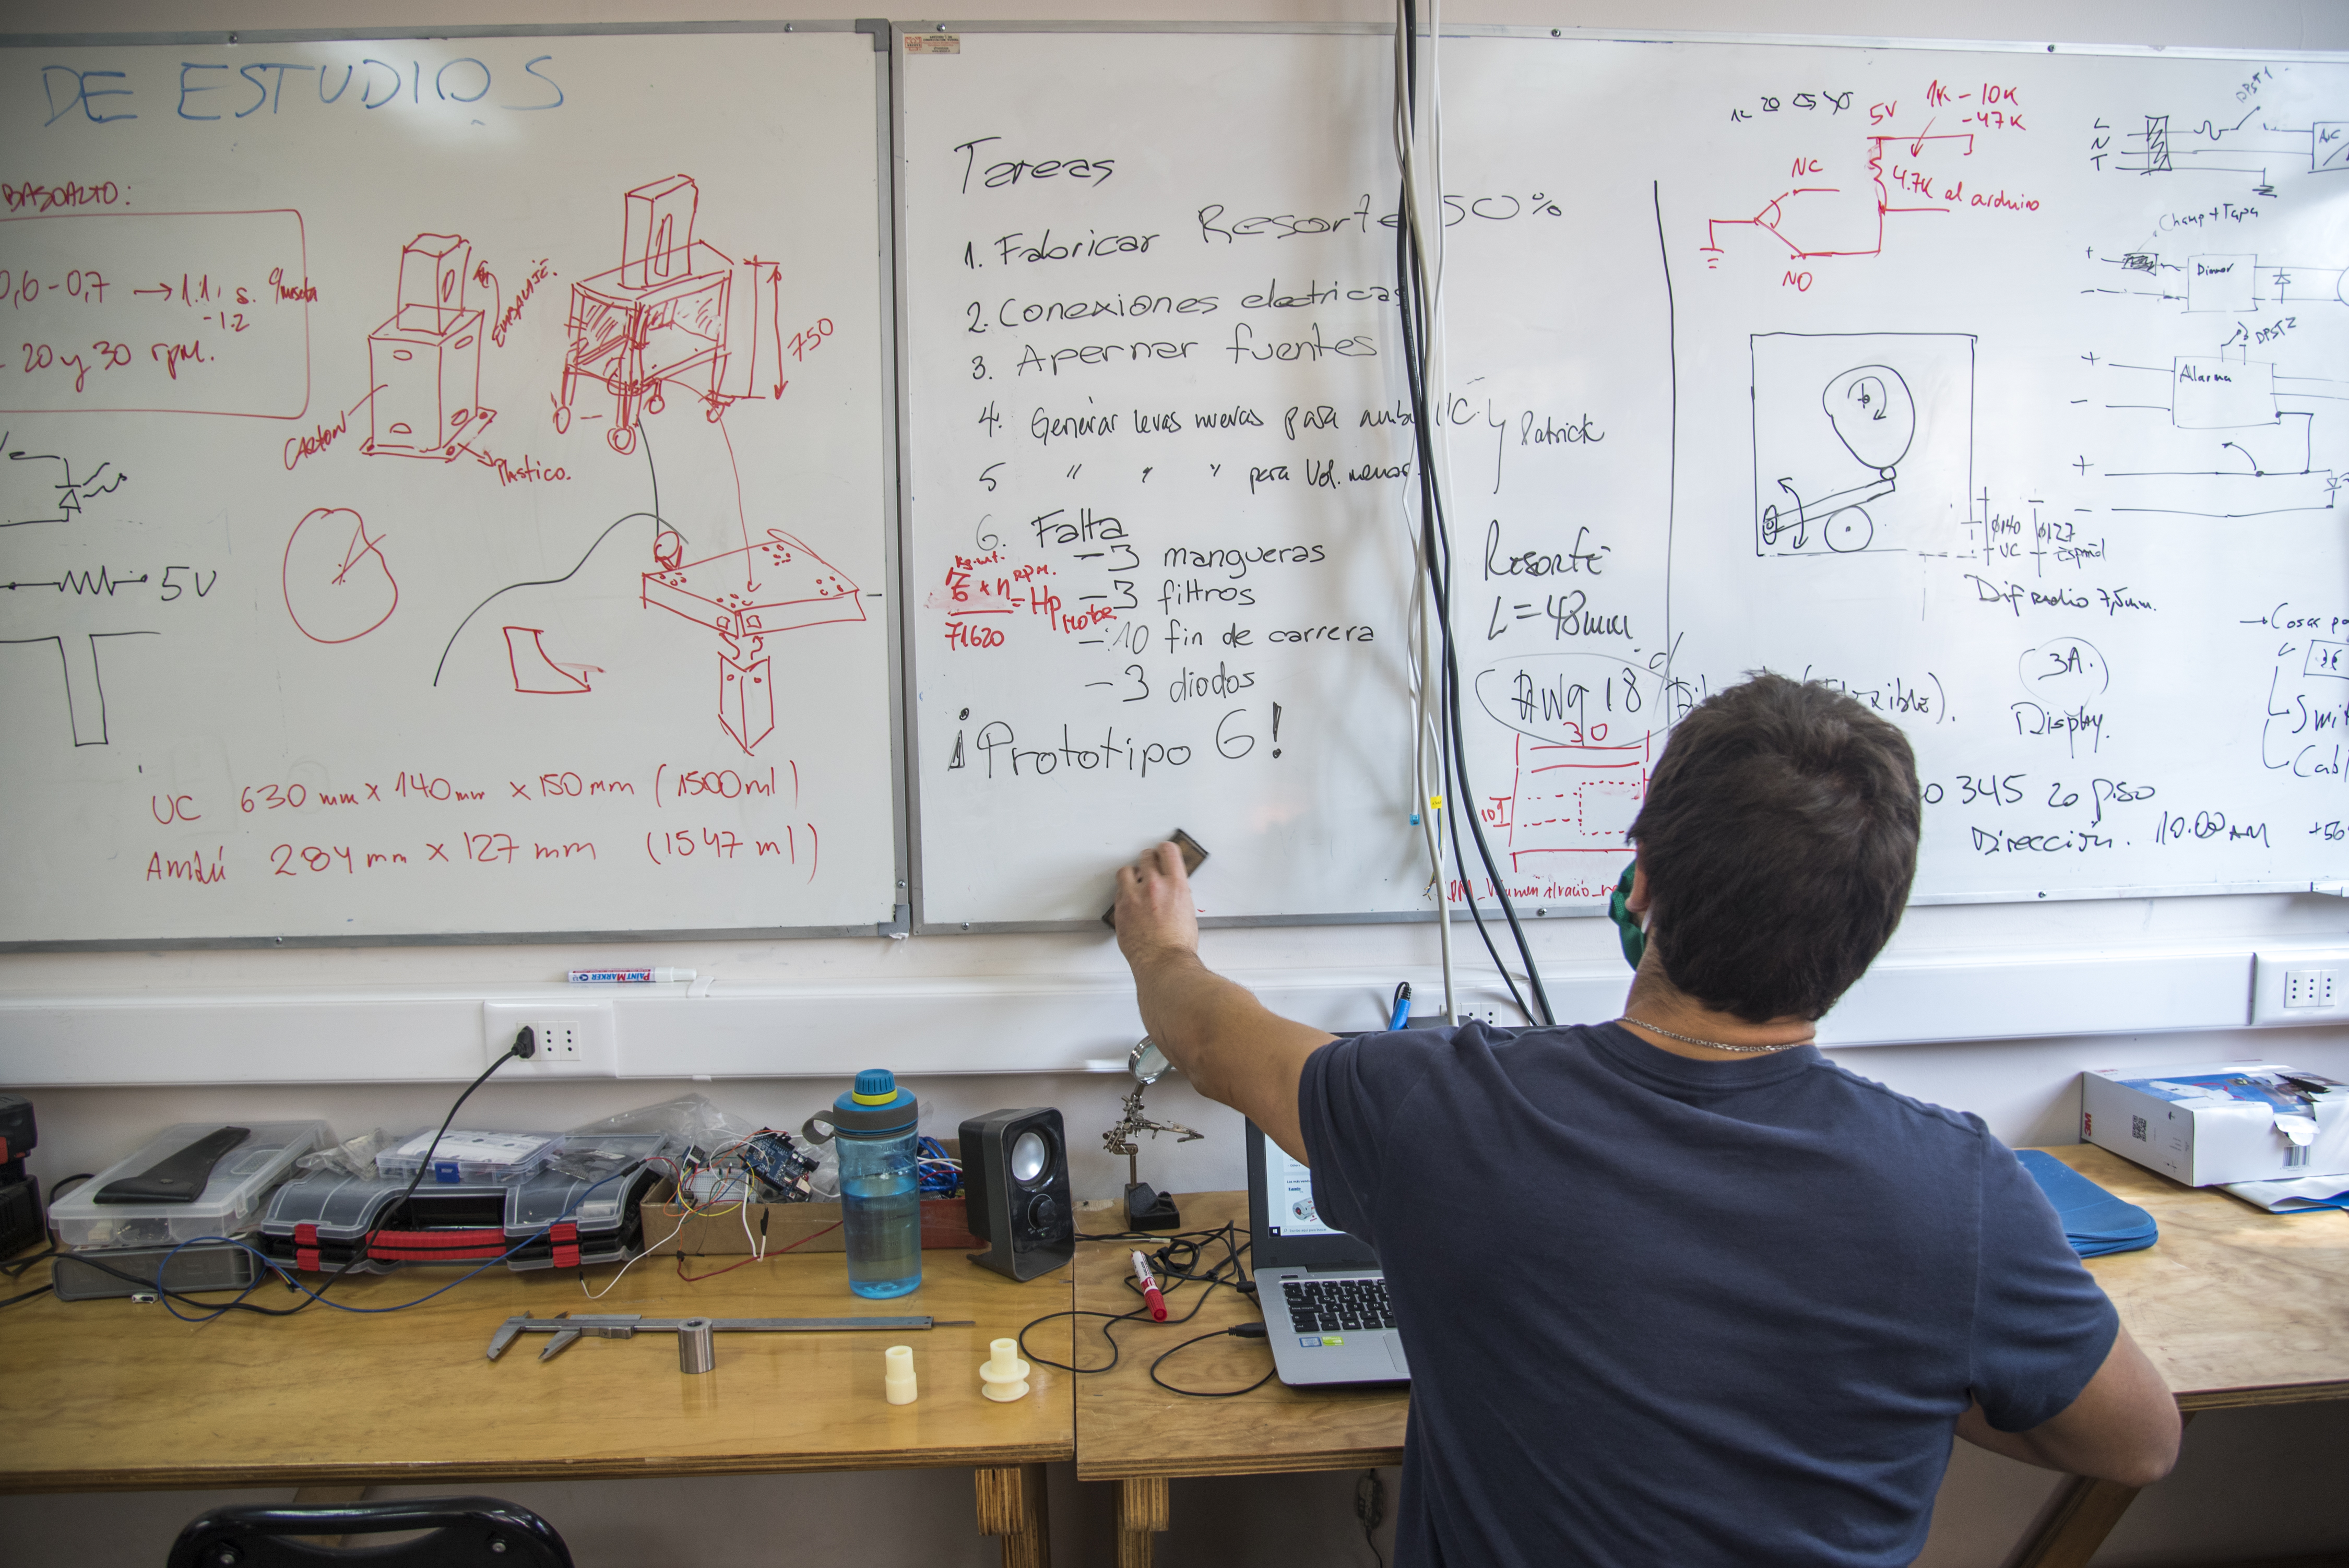 DE ESTUDIOS
BASOALTO:
0,6-0,7 → 1:1, s.
-1.2
20 y 30 rpm.
EMBALAJE.
CARTON
Plastico.
750
5V
UC 630 mm x 140 mm x 150 mm (1500 ml)
Ambú 284 mm x 127 mm (1547 ml)
Tareas
1. Fabricar Resorte 50%
2. Conexiones electricas
3. Apernar fuentes
4. Generar levas nuevas para ambu UC
5 " " " para Vol. menor
Patrick
6. Falta
- 3 mangueras
- 3 filtros
- 10 fin de carrera
- 3 diodos
rpm.
x n = Hp
71620
Motor
¡Prototipo 6!
Resorte
L=48mm
AWG 18
30
10
5V
1K - 10K
- 47K
NC
4.7K al arduino
NO
L
N
T
DPST1
Champ + Tapa
+
-
Dimmer
DPST2
+
-
Alarma
+
-
Ø140
UC
Ø127
Español
Dif radio 7,5mm.
→ Cosas
3A.
Display.
345 20 piso
Dirección. 10:00 AM
+56
PAINT MARKER
3M